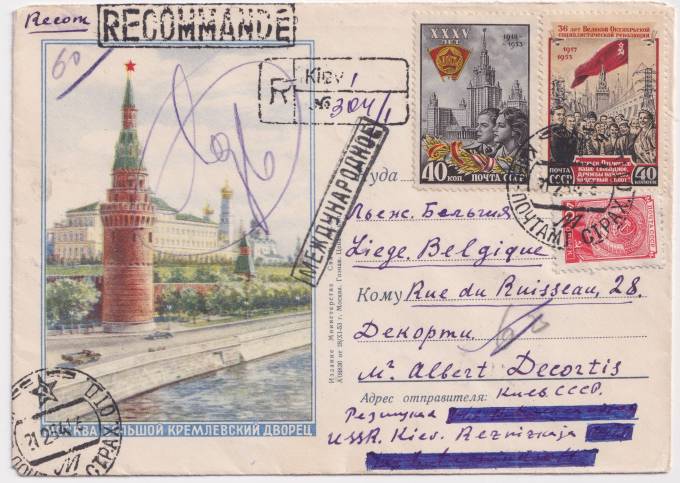 Recom.
RECOMMANDE
60
R
Kiev 1
№
304/1
МЕЖДУНАРОДНОЕ
XXXV
ЛЕТ
1918-
1953
40 КОП. ПОЧТА СССР
36 ЛЕТ ВЕЛИКОЙ ОКТЯБРЬСКОЙ
СОЦИАЛИСТИЧЕСКОЙ РЕВОЛЮЦИИ
1917
1953
ПОЧТА
СССР
40
КОПЕЕК
ПОЧТАМТ
СТРАХ
Куда
Льеж. Бельгия
Liege. Belgique
Кому Rue du Ruisseau, 28.
Декорти
Mr Albert Decortis
Адрес отправителя: Киев СССР.
Резницкая
USSR. Kiev. Reznizkaja
Издание Министерства
МОСКВА БОЛЬШОЙ КРЕМЛЕВСКИЙ ДВОРЕЦ
СТРАХ